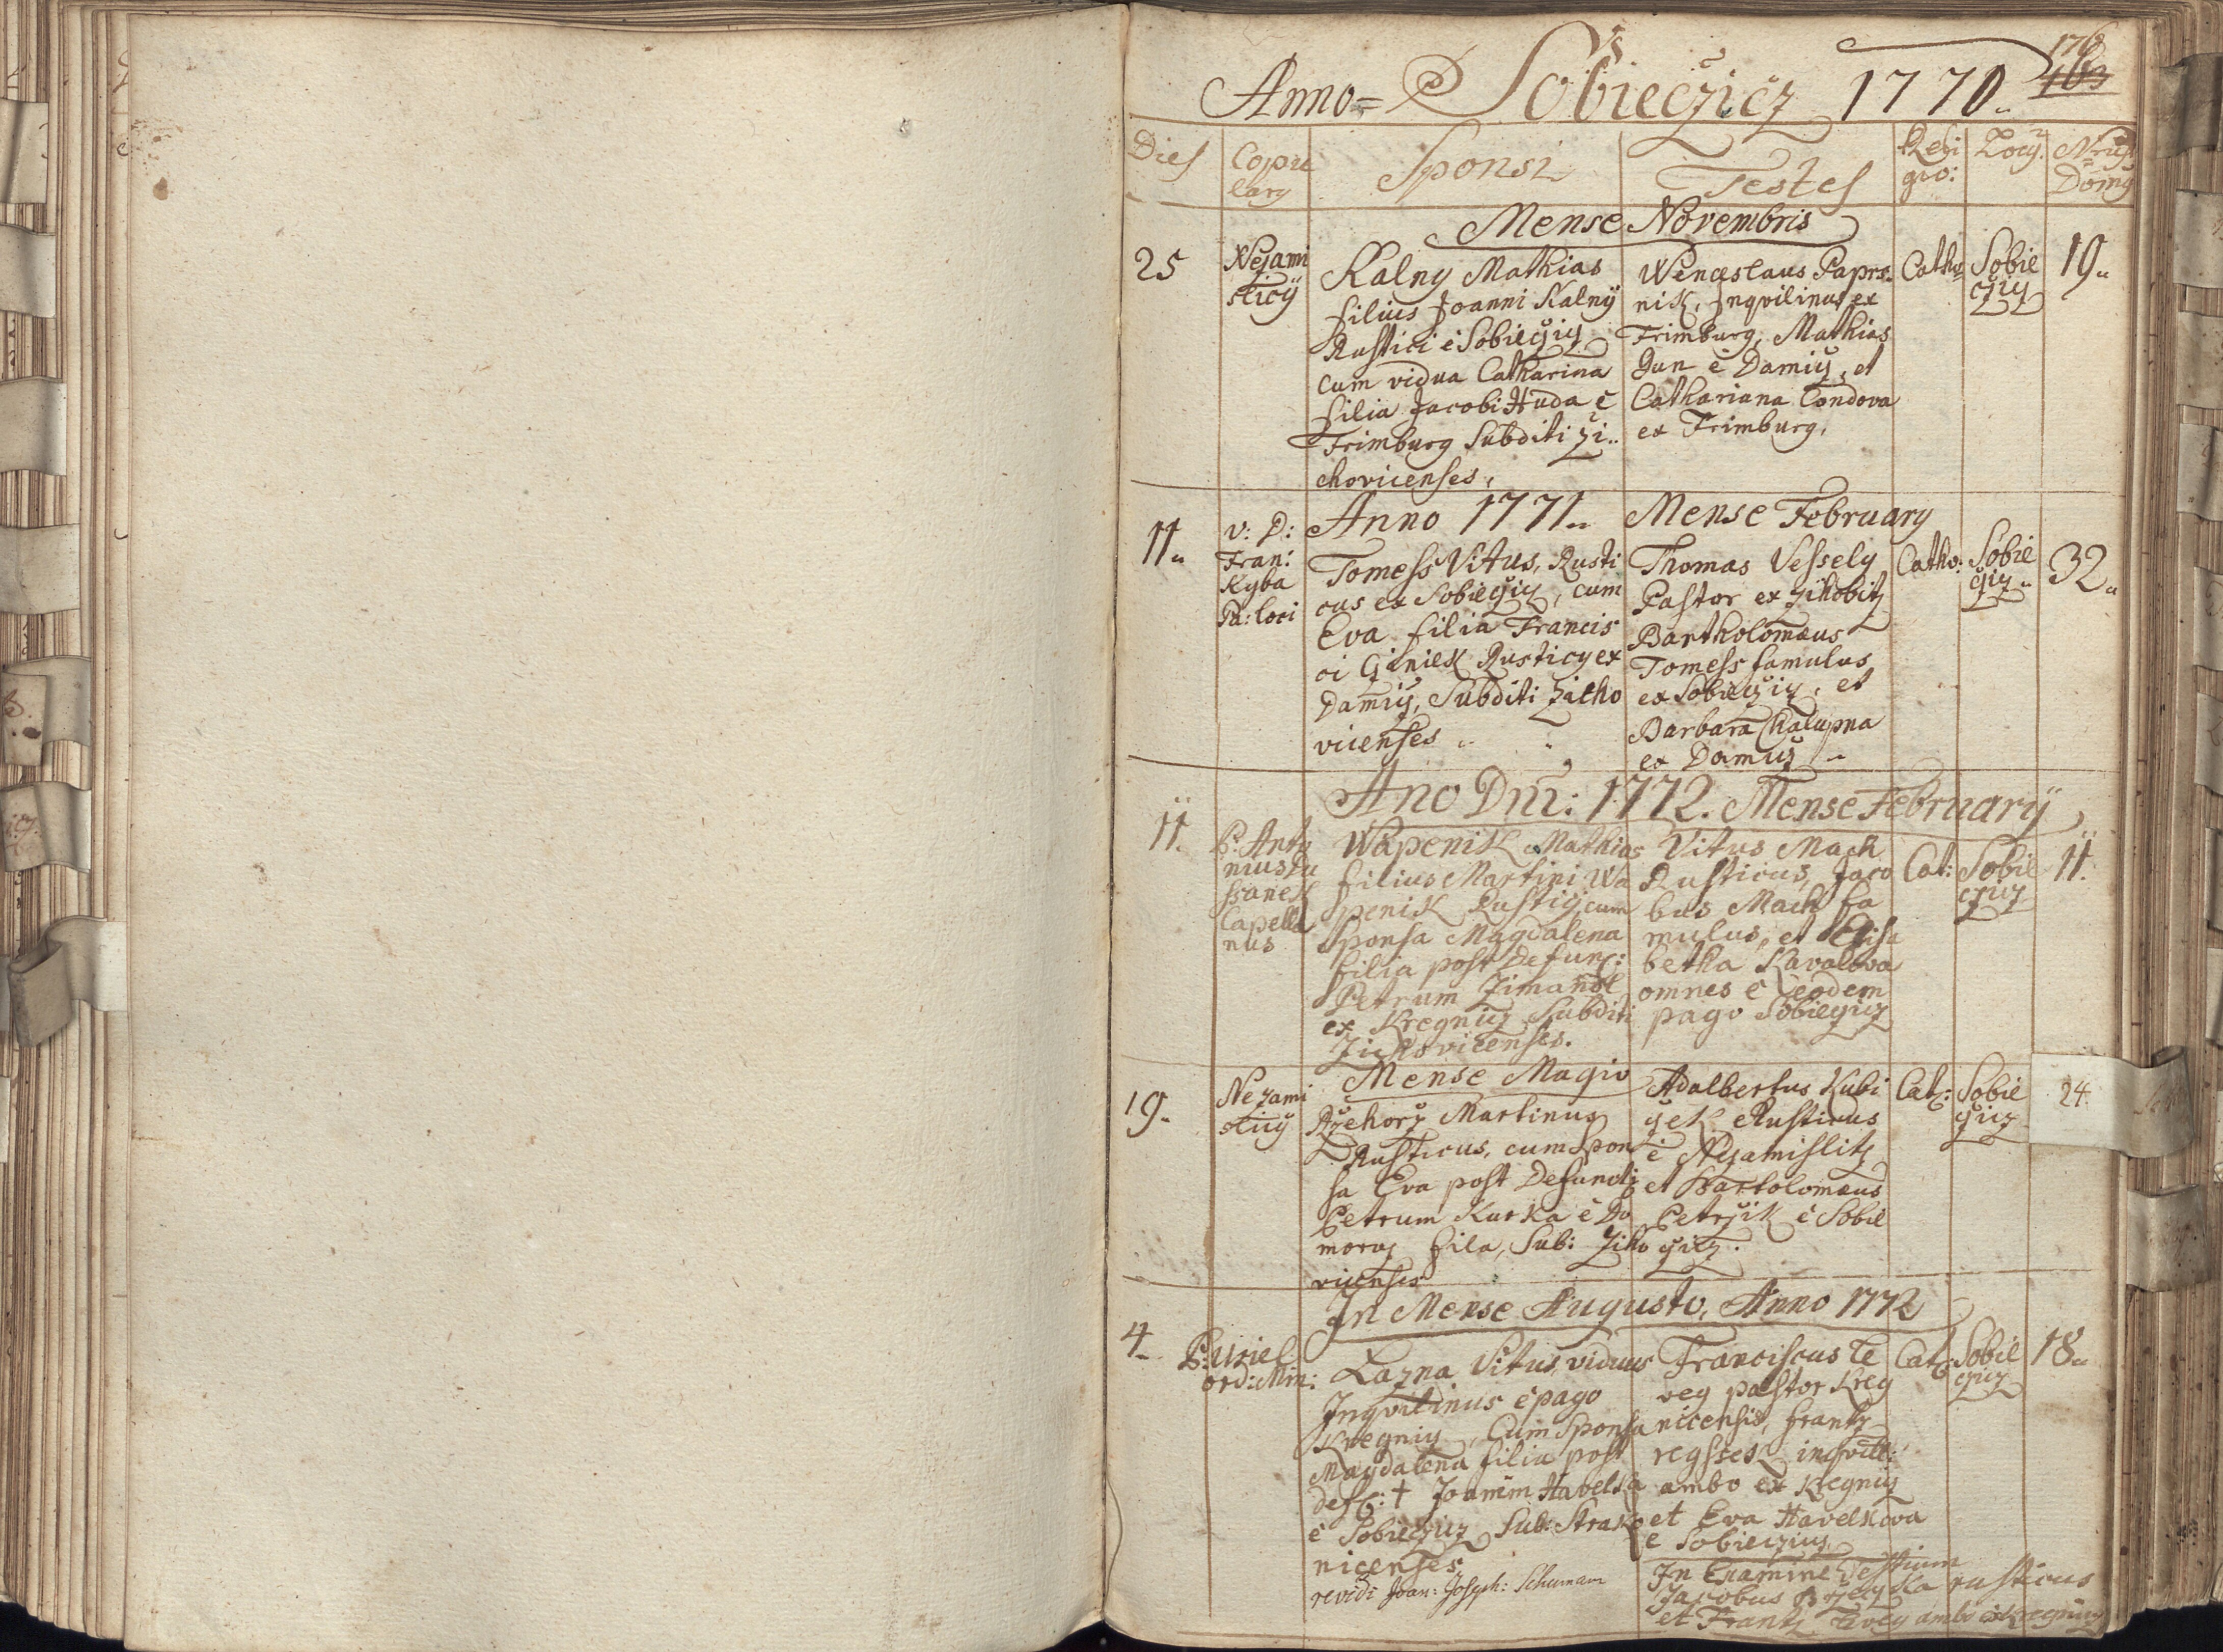 176
163
Anno = Sobieczicz 1770
Dies Copu Sponsi Testes Reli Locy Nrus
lary gio: Domy
Mense Novembris
25 Nejami
sticÿ
Kalny Mathias
filius Joanni Kalnÿ
Rustici è Sobieczicz
cum vidua Catharina
filia Jacobi Huda è
Frimburg Subditi Zi
chovicenses,
Wenceslaus Paprs
nik, Inqvilinus ex
Frimburg, Mathias
Dun è Damicz, et
Cathariana Condova
ex Frimburg,
Catho Sobie 19
czicz
Anno 1771 Mense February
11 v: D:
Fran:
Kyba
Pa: loci
Tomess Vitus, Rusti
cus ex Sobieczicz, cum
Eva filia Francis
ci Rusticy ex
Damicz, Subditi Zicho
vicenses
Thomas Vessely
Pastor ex Zihobitz
Bartholomæus
Tomess famulus
ex Sobieczicz, et
Barbara Chalupna
ex Damicz
Catho: Sobie 32
czicz
Ano Dni: 1772. Mense Februarÿ
11. P: Anto
nius Du
ssanek
Capella
nus
Wapenik Mathias
filius Martini Wa
penik Rusticy, cum
Sponsa Magdalena
filia post Defunc:
Petrum Zimandl
ex Kregnicz Subditi
Zichovicenses.
Vitus Mach
Rusticus, Jaco
bus Mach fa
mulus, et Elisa
betha Kavalova
omnes è eodem
pago Sobieczicz
Cat: Sobie 11.
czicz
Mense Magio
19. Nezami
sticÿ
Rzehorz Martinus
Rusticus, cum Spon
sa Eva post Defuncti
Petrum Kurka è Do
moracz fila, Sub: Ziho
vicenses
Adalbertus Kubi
czek Rusticus
è Nezamislitz
et Bartolomæus
Petrzik è Sobie
czicz.
Cat: Sobie 24.
czicz
In Mense Augusto, Anno 1772
4. P: Uriel
ord: Min:
Lazna Vitus, viduus
Inqvilinus è pago
Kregnicz, Cum Sponsa
Magdalena filia post
def: † Joanim Havelka
è Sobieczicz Sub: Strako
nicenses
revidi Joan: Joseph: Schumann
Franciscus Te
veg pastor Kreg
nicensis, Frantz
ambo ex Kregnicz
et Eva Havelkova
è Sobieczicz
Cat: Sobie 18
czicz
In Examine Testium
Jacobus rusticus
et Frantz ambo